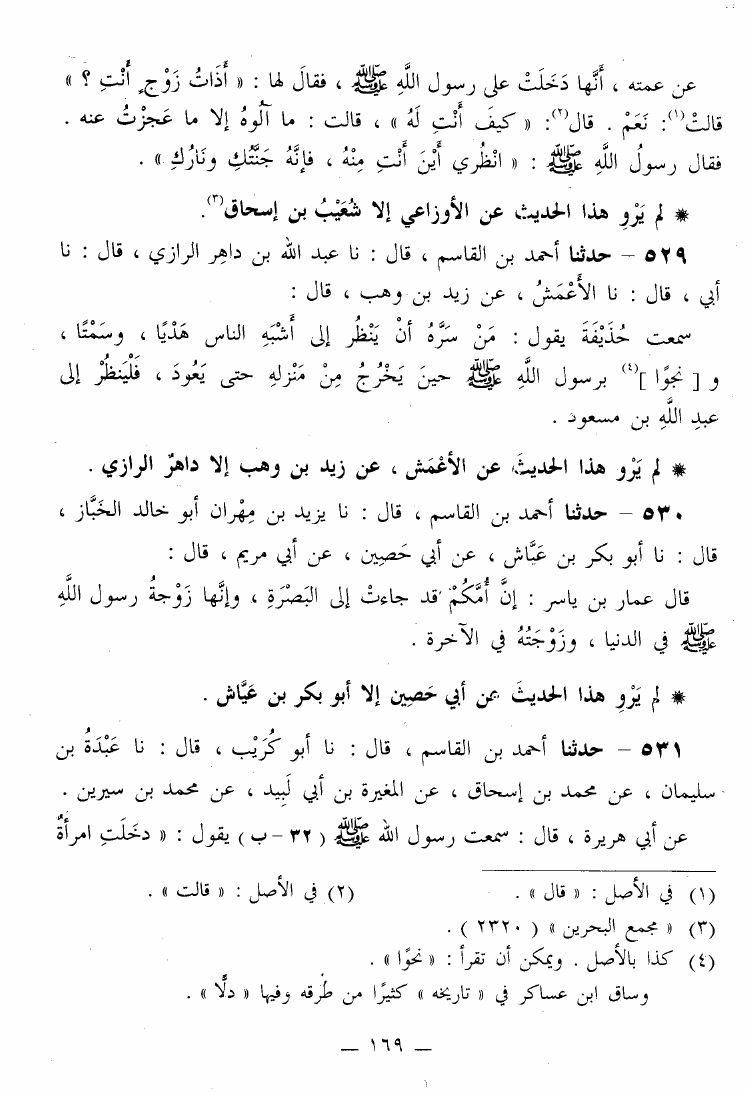 عن عمته ، أَنَّها دَخَلَتْ على رسول اللَّهِ ﷺ ، فقالَ لها : « أَذَاتُ زَوْجٍ أَنْتِ ؟ »
قالتْ(١): نَعَمْ . قال(٢): « كيفَ أَنْتِ لَهُ » ، قالت : ما آلُوهُ إلا ما عَجزْتُ عنه .
فقال رسولُ اللَّهِ ﷺ : « انْظُري أَيْنَ أَنْتِ مِنْهُ ، فإنَّهُ جَنَّتُكِ ونَارُكِ » .
* لم يَرْوِ هذا الحديث عن الأوزاعي إلا شُعَيْبُ بن إسحاق(٣).
٥٢٩ – حدثنا أحمد بن القاسم ، قال : نا عبد الله بن داهِر الرازي ، قال : نا
أبي ، قال : نا الأَعْمَشُ ، عن زيد بن وهب ، قال :
سمعت حُذَيْفَةَ يقول : مَنْ سَرَّهُ أنْ يَنْظُر إلى أَشْبَهِ الناس هَدْيًا ، وسَمْتًا ،
و [ نجوًا ](٤) برسول اللَّهِ ﷺ حينَ يَخْرُجُ مِنْ مَنْزلهِ حتى يَعُودَ ، فَلْيَنظُرْ إلى
عبدِ اللَّهِ بن مسعود .
* لم يَرْوِ هذا الحديثَ عن الأعْمَش ، عن زيد بن وهب إلا داهرٌ الرازي .
٥٣٠ – حدثنا أحمد بن القاسم ، قال : نا يزيد بن مِهْران أبو خالد الخَبَّاز ،
قال : نا أبو بكر بن عَيَّاش ، عن أبي حَصِين ، عن أبي مريم ، قال :
قال عمار بن ياسر : إنَّ أُمَّكُمْ قد جاءتْ إلى البَصْرَةِ ، وإنَّها زَوْجةُ رسول اللَّهِ
ﷺ في الدنيا ، وزَوْجَتُهُ في الآخرة .
* لم يَرْوِ هذا الحديثَ عن أبي حَصِين إلا أبو بكر بن عَيَّاش .
٥٣١ – حدثنا أحمد بن القاسم ، قال : نا أبو كُرَيْب ، قال : نا عَبْدَةُ بن
سليمان ، عن محمد بن إسحاق ، عن المغيرة بن أبي لَبِيد ، عن محمد بن سيرين .
عن أبي هريرة ، قال : سمعت رسول الله ﷺ ( ٣٢ – ب ) يقول : « دخَلَتِ امرأَةٌ
(١) في الأصل : « قال » . (٢) في الأصل : « قالت » .
(٣) « مجمع البحرين » ( ٢٣٢٠ ) .
(٤) كذا بالأصل . ويمكن أن تقرأ : « نحوًا » .
وساق ابن عساكر في « تاريخه » كثيرًا من طُرقه وفيها « دلًّا » .
— ١٦٩ —